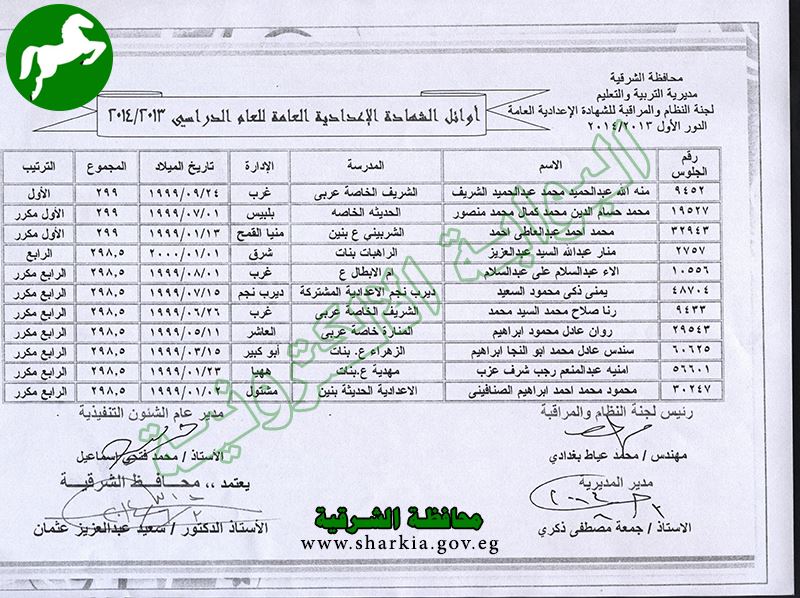 محافظة الشرقية
مديرية التربية والتعليم
لجنة النظام والمراقبة للشهادة الإعدادية العامة
الدور الأول ٢٠١٤/٢٠١٣
أوائل الشهادة الإعدادية العامة للعام الدراسي ٢٠١٤/٢٠١٣
رقم الجلوس الاسم المدرسة الإدارة تاريخ الميلاد المجموع الترتيب
٩٤٥٢ منه الله عبدالحميد محمد عبدالحميد الشريف الشريف الخاصة عربى غرب ١٩٩٩/٠٩/٢٤ ٢٩٩ الأول
١٩٥٢٧ محمد حسام الدين محمد كمال محمد منصور الحديثه الخاصه بلبيس ١٩٩٩/٠٧/٠١ ٢٩٩ الأول مكرر
٣٢٩٤٣ محمد أحمد عبدالعاطى احمد الشربيني ع بنين منيا القمح ١٩٩٩/٠١/١٣ ٢٩٩ الأول مكرر
٢٧٥٧ منار عبدالله السيد عبدالعزيز الراهبات بنات شرق ٢٠٠٠/٠١/٠١ ٢٩٨,٥ الرابع
١٠٥٥٦ الاء عبدالسلام على عبدالسلام م الابطال ع غرب ١٩٩٩/٠٨/٠١ ٢٩٨,٥ الرابع مكرر
٤٨٧٠٤ يمنى ذكى محمود السعيد ديرب نجم الاعدادية المشتركة ديرب نجم ١٩٩٩/٠٧/١٥ ٢٩٨,٥ الرابع مكرر
٩٤٣٣ رنا صلاح محمد السيد محمد الشريف الخاصة عربى غرب ١٩٩٩/٠٦/٢٦ ٢٩٨,٥ الرابع مكرر
٢٩٥٤٣ روان عادل محمود ابراهيم المنارة خاصة عربى العاشر ١٩٩٩/٠٥/١١ ٢٩٨,٥ الرابع مكرر
٦٠٦٢٥ سندس عادل محمد ابو النجا ابراهيم الزهراء ع. بنات أبو كبير ١٩٩٩/٠٣/١٥ ٢٩٨,٥ الرابع مكرر
٥٦٦٠١ امنيه عبدالمنعم رجب شرف عزب مهدية ع.بنات ههيا ١٩٩٩/٠١/٢٣ ٢٩٨,٥ الرابع مكرر
٣٠٢٤٧ محمود محمد احمد ابراهيم الصنافينى الاعدادية الحديثة بنين مشتول ١٩٩٩/٠١/٠٢ ٢٩٨,٥ الرابع مكرر
البوابة الالكترونية
رئيس لجنة النظام والمراقبة
مهندس / محمد عياط بغدادي
مدير المديرية
الاستاذ / جمعة مصطفى ذكري
مدير عام الشئون التنفيذية
الأستاذ / محمد فتحى اسماعيل
يعتمد ,, محافظ الشرقية
الأستاذ الدكتور / سعيد عبدالعزيز عثمان
محافظة الشرقية
www.sharkia.gov.eg